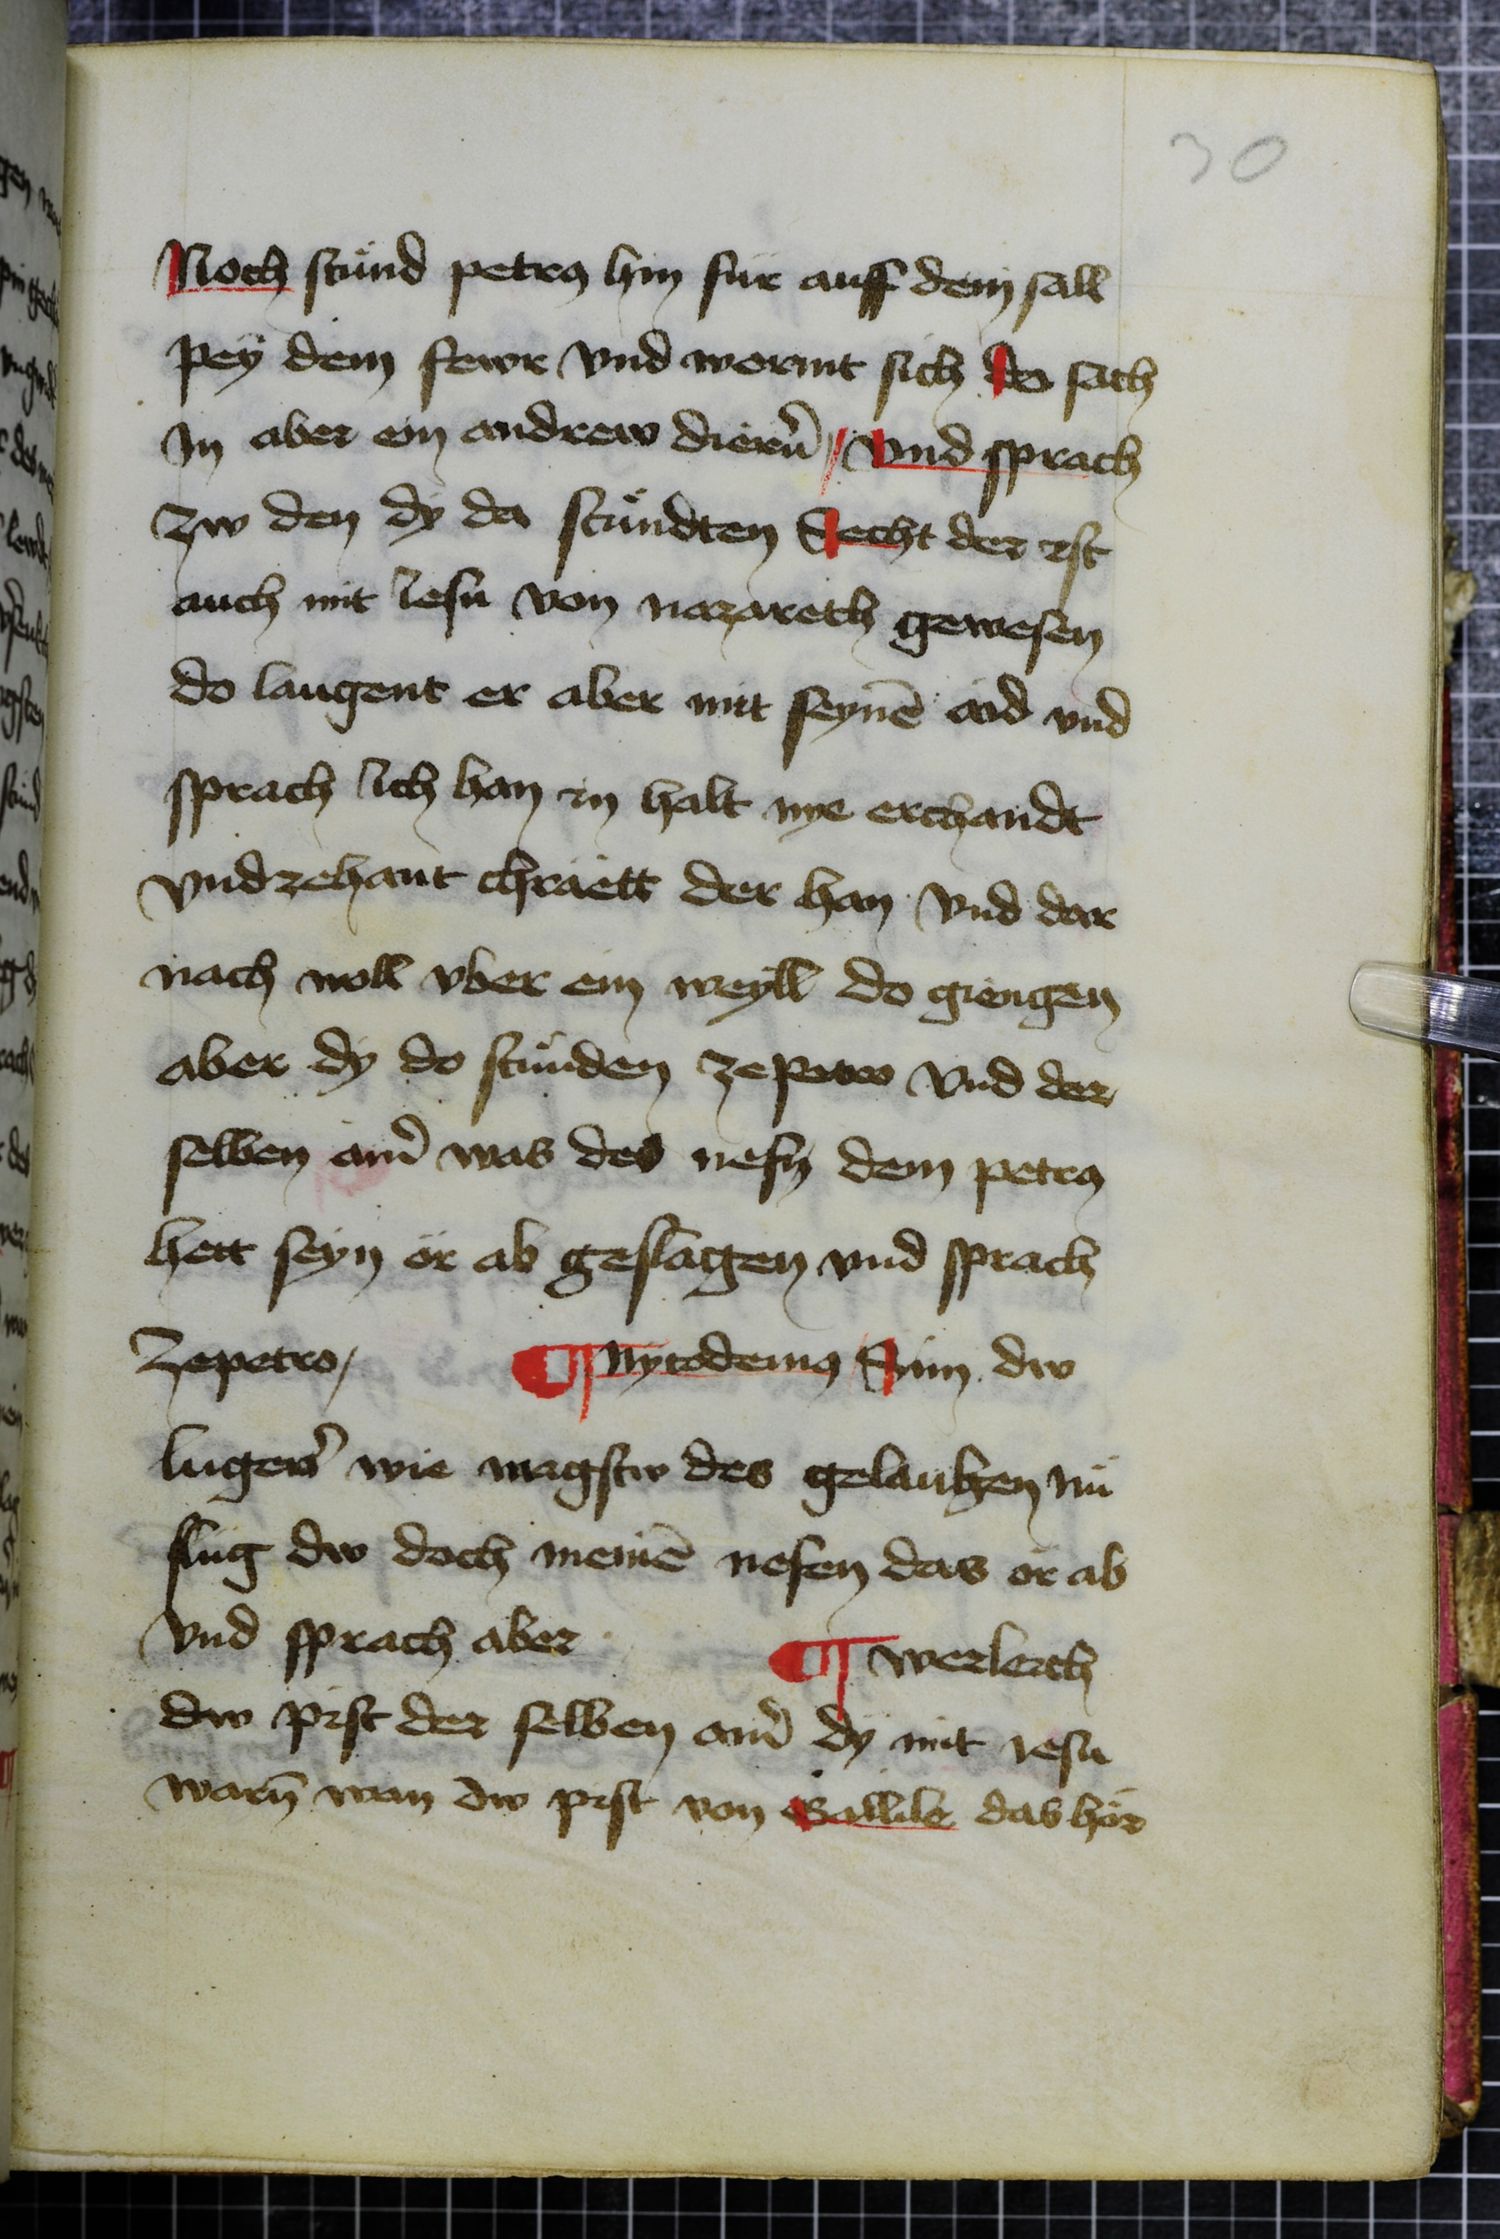 30
Noch stuͤnd petrꝰ hin fur auff dem sall
pey dem fewr vnd wermt sich do sach
In aber ein andrew diern̄ // vnd sprach
zw den dy da stuͤndten Secht der ist
auch mit Iesu von nazareth gewesen
do laugent er aber mit seynē aid vnd
sprach Ich han in halt nye erchandt
vnd zehant chraett der han vnd dar
nach woll vber ein weyll do giengen
aber dy do stuͤnden ze petro vnd der
selben ainer was des nefn dem petrꝰ
hett seyn or ab geslagen vnd sprach
Ze petro / ¶ Nycodemꝰ Sim dw
lugner wie magstw des gelaugen nu
slug dw doch meinē nefen das or ab
vnd sprach aber ¶ werleich
dw pist der selben ainer dy mit iesu
warn̄ wan dw pist von Gallile das hor